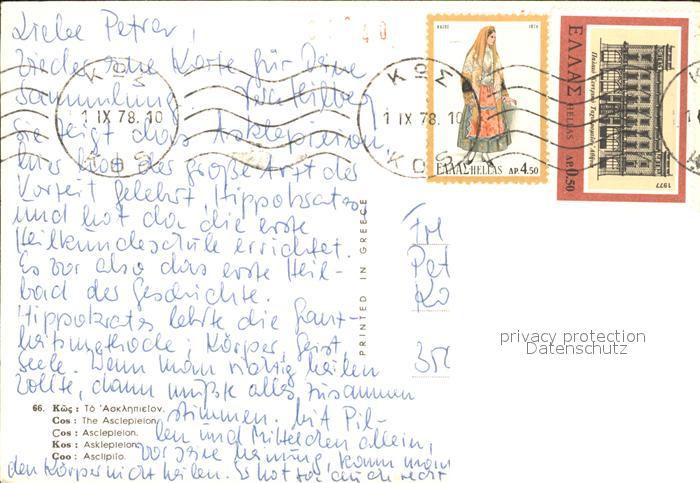 Liebe Petra,
wieder eine Karte für Deine
Sammlung
Sie zeigt das Asklepieion,
hier hat der große Arzt der
Vorzeit gelebt, Hippokrates
und hat da die erste
Heilkundeschule errichtet.
Es war also das erste Heil-
bad der Geschichte.
Hippokrates lehrte die Ganz-
heitsmethode; Körper, Geist,
Seele. Wenn man richtig heilen
wollte, dann mußte alles zusammen
stimmen. Mit Pil-
len und Mittelchen allein,
war seine Meinung, kann man
den Körper nicht heilen. Er hat ja auch recht
66. Κῶς : Τὸ Ἀσκληπιεῖον.
Cos : The Asclepieion.
Cos : Asclepieion.
Kos : Asklepieion.
Coo : Asclipiio.
PRINTED IN GREECE
ΚΩΣ
1 IX 78. 10
ΚΩΣ
ΚΩΣ
1 IX 78. 10
ΚΩΣ
1974
ΕΛΛΑΣ HELLAS ΔΡ. 4.50
ΕΛΛΑΣ HELLAS ΔΡ. 0.50
1977
Frl
Pet
Ko
350
privacy protection
Datenschutz